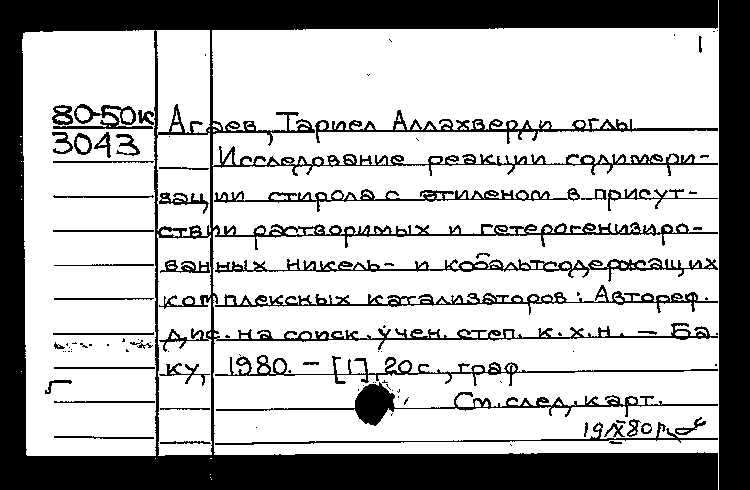 1
80-50к Агаев, Тариел Аллахверди оглы
3043
Исследование реакции содимери-
зации стирола с этиленом в присут-
ствии растворимых и гетерогенизиро-
ванных никель- и кобальтсодержащих
комплексных катализаторов: Автореф.
дис. на соиск. учен. степ. к.х.н. — Ба
ку, 1980. — [1], 20 с., граф.
См. след. карт.
19IX80